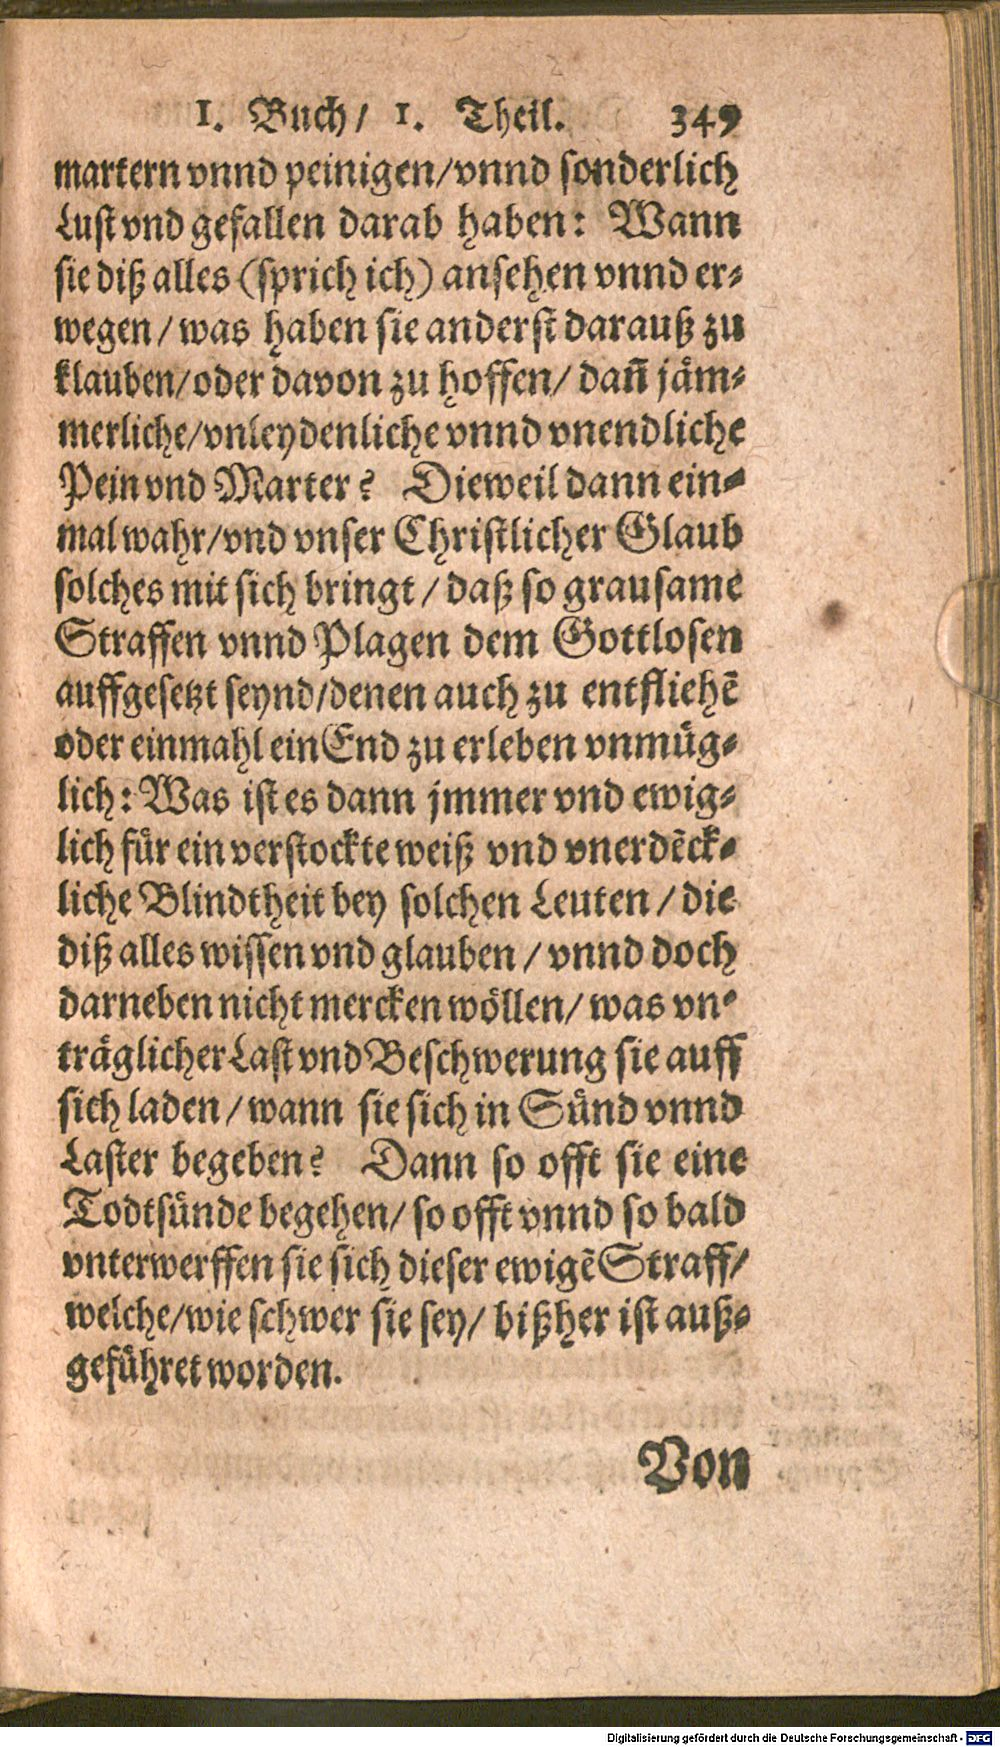 1. Buch/ 1. Theil. 349
martern vnnd peinigen/vnnd sonderlich
Lust vnd gefallen darab haben: Wann
sie diß alles (sprich ich) ansehen vnnd er-
wegen/ was haben sie anderst darauß zu
klauben/oder davon zu hoffen/ dañ jäm-
merliche/vnleydenliche vnnd vnendliche
Pein vnd Marter? Dieweil dann ein-
mal wahr/vnd vnser Christlicher Glaub
solches mit sich bringt/ daß so grausame
Straffen vnnd Plagen dem Gottlosen
auffgesetzt seynd/denen auch zu entfliehẽ
oder einmahl ein End zu erleben vnmüg-
lich: Was ist es dann jmmer vnd ewig-
lich für ein verstockte weiß vnd vnerdẽck-
liche Blindtheit bey solchen Leuten/ die
diß alles wissen vnd glauben/ vnnd doch
darneben nicht mercken wöllen/ was vn-
träglicher Last vnd Beschwerung sie auff
sich laden/ wann sie sich in Sünd vnnd
Laster begeben? Dann so offt sie eine
Todtsünde begehen/ so offt vnnd so bald
vnterwerffen sie sich dieser ewigẽ Straff/
welche/wie schwer sie sey/ bißher ist auß-
geführet worden.
Von
Digitalisierung gefördert durch die Deutsche Forschungsgemeinschaft - DFG